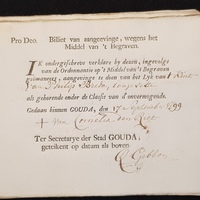 Pro Deo. Billet van aangeevinge, wegens het
Middel van 't Begraven.
IK ondergeschreve verklare by deezen, ingevolge
van de Ordonnantie op 't Middel van 't Begraven
geëmaneert, aangevinge te doen van het Lyk van 't kint
van Philip
als gehorende onder de Classis van d'onvermogende.
Gedaan binnen GOUDA, den 17 September 1799
Cornelis van
Ter Secretarye der Stad GOUDA,
getekent op datum als boven